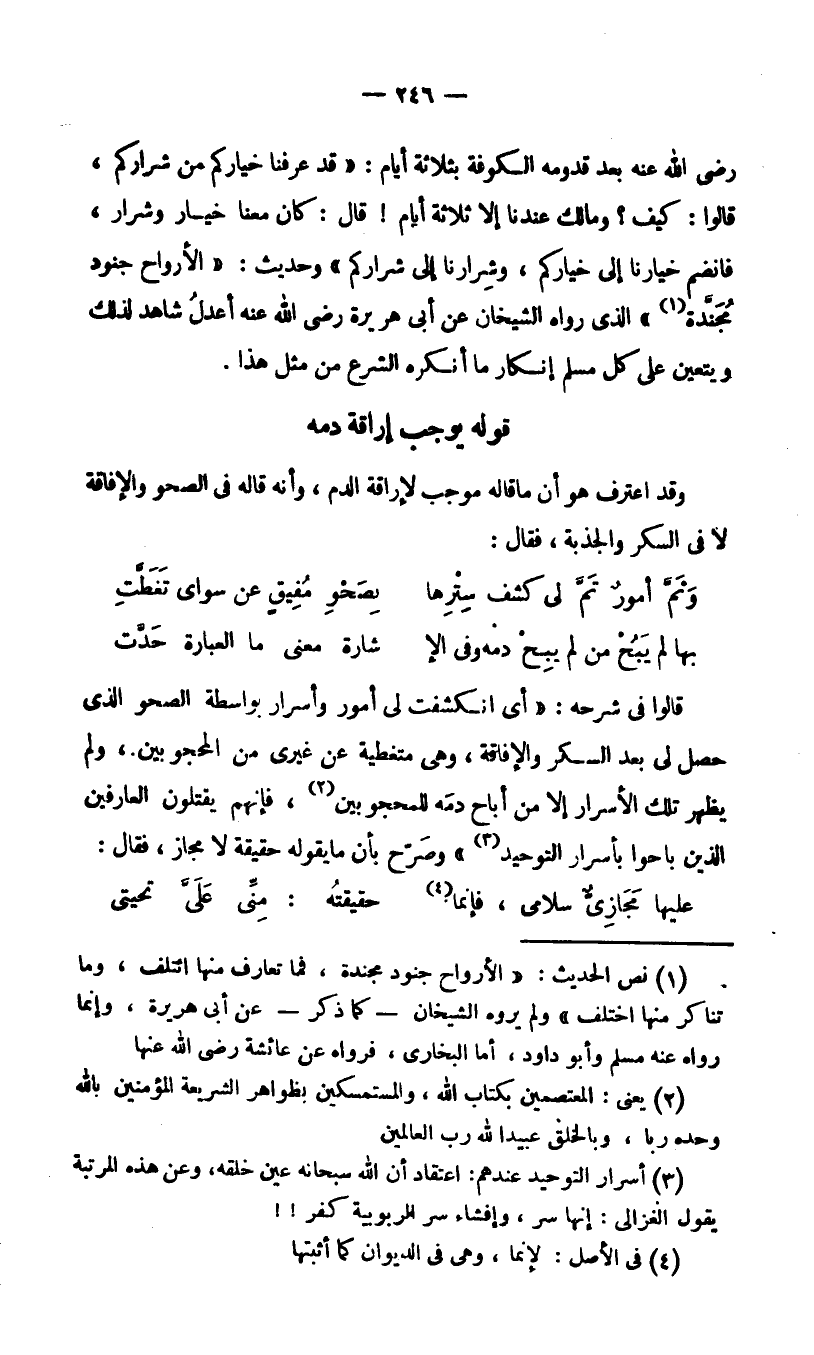 — ٢٤٦ —
رضى الله عنه بعد قدومه الكوفة بثلاثة أيام : « قد عرفنا خياركم من شراركم ،
قالوا : كيف ؟ ومالك عندنا إلا ثلاثة أيام ! قال : كان معنا خيار وشرار ،
فانضم خيارنا إلى خياركم ، وشِرارنا إلى شراركم » وحديث : « الأرواح جنود
مُجَنَّدة(١) » الذى رواه الشيخان عن أبى هريرة رضى الله عنه أعدلُ شاهد لذلك
ويتعين على كل مسلم إنكار ما أنكره الشرع من مثل هذا .
قوله يوجب إراقة دمه
وقد اعترف هو أن ماقاله موجب لإراقة الدم ، وأنه قاله فى الصحو والإفاقة
لا فى السكر والجذبة ، فقال :
وَثَمَّ أمورٌ تَمَّ لى كشف سِتْرِها بِصَحْوِ مُفِيقٍ عن سواى تَغَطَّتِ
بها لم يَبُحْ من لم يبِحْ دمْه وفى الإ شارة معنى ما العبارة حَدَّت
قالوا فى شرحه : « أى انكشفت لى أمور وأسرار بواسطة الصحو الذى
حصل لى بعد السكر والإفاقة ، وهى متغطية عن غيرى من المحجوبين . ، ولم
يظهر تلك الأسرار إلا من أباح دمَه للمحجوبين(٢) ، فإنهم يقتلون العارفين
الذين باحوا بأسرار التوحيد(٣) » وصَرّح بأن مايقوله حقيقة لا مجاز ، فقال :
عليها مَجَازِىٌّ سلامى ، فإنما(٤) حقيقتُه : مِنِّى عَلَىَّ تحيتى
(١) نص الحديث : « الأرواح جنود مجندة ، فما تعارف منها ائتلف ، وما
تناكر منها اختلف » ولم يروه الشيخان — كما ذكر — عن أبى هريرة ، وإنما
رواه عنه مسلم وأبو داود ، أما البخارى ، فرواه عن عائشة رضى الله عنها
(٢) يعنى : المعتصمين بكتاب الله ، والمستمسكين بظواهر الشريعة المؤمنين بالله
وحده ربا ، وبالخلق عبيدا لله رب العالمين
(٣) أسرار التوحيد عندهم : اعتقاد أن الله سبحانه عين خلقه ، وعن هذه المرتبة
يقول الغزالى : إنها سر ، وإفشاء سر الربوبية كفر ! !
(٤) فى الأصل : لإنما ، وهى فى الديوان كما أثبتها